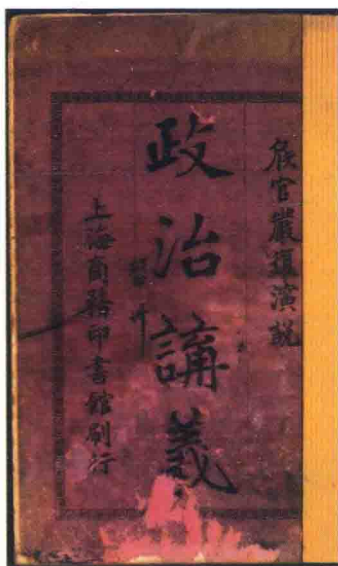 侯官嚴復演説
政治講義
上海商務印書館刷行